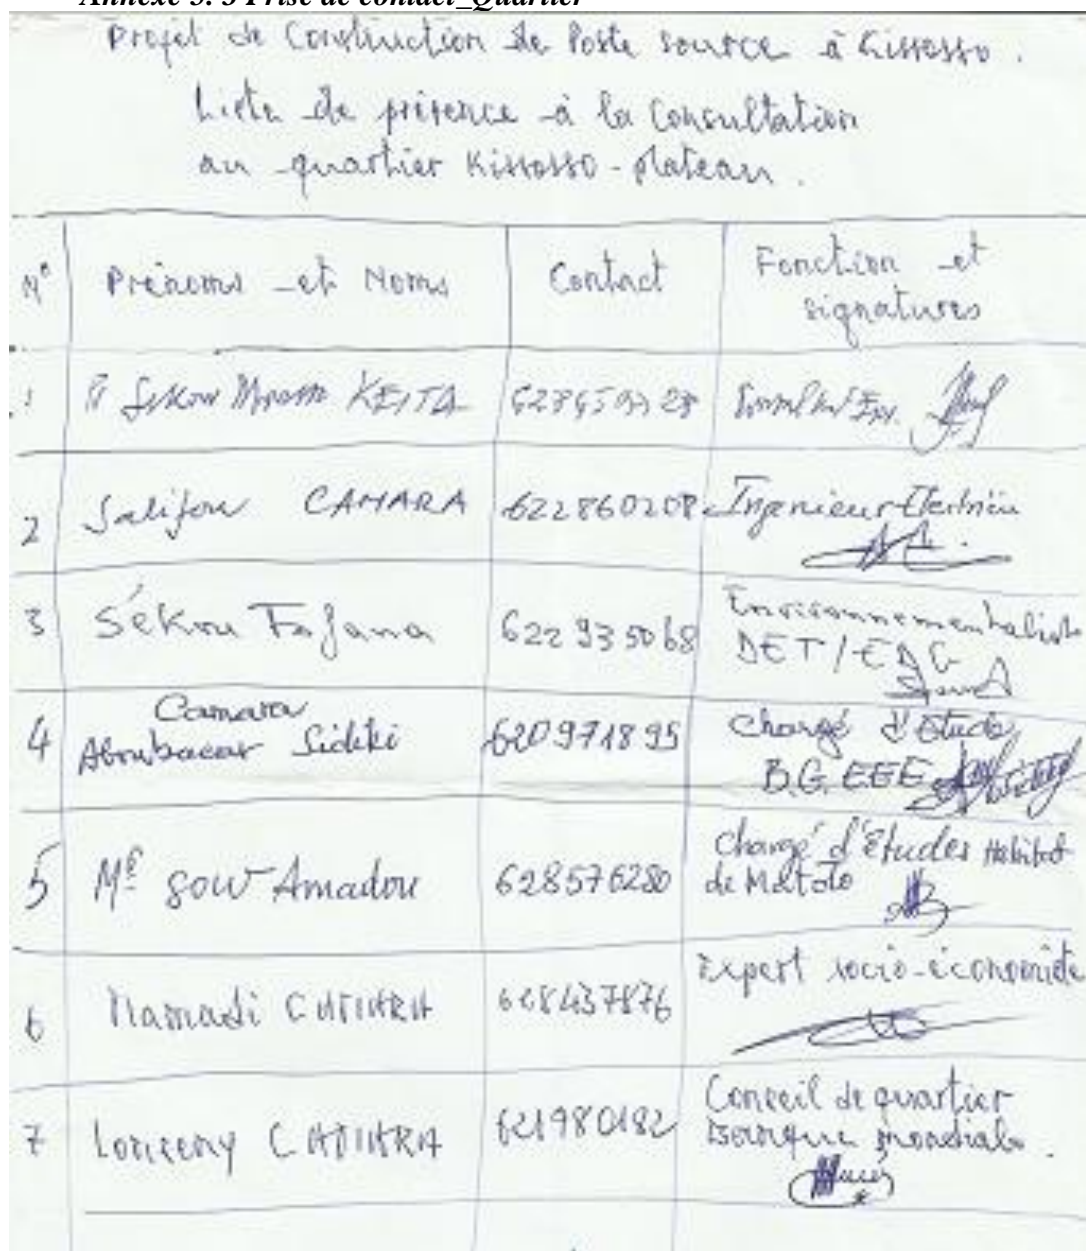 Annexe 3. 3 Prise de contact_Quartier
Projet de Construction de Poste source à Kissosso.
Liste de présence à la Consultation
au quartier Kissosso-plateau.
N° Prénoms et Noms Contact Fonction et signatures
1 KEITA
2 Salifou CAMARA 622860208 Ingenieur
3 Sékou Fofana 622 93 50 68 Environnementaliste DET/EDG
4 Camara Aboubacar Sidiki 620971895 Chargé d'Etude B.G.EEE
5 Sow Amadou 628576280 Chargé d'Etudes Habitat de Matoto
6 Mamadi CAMARA 628437876 Expert socio-économiste
7 Lonceny CAMARA 621980182 Conseil de quartier Banque mondiale.